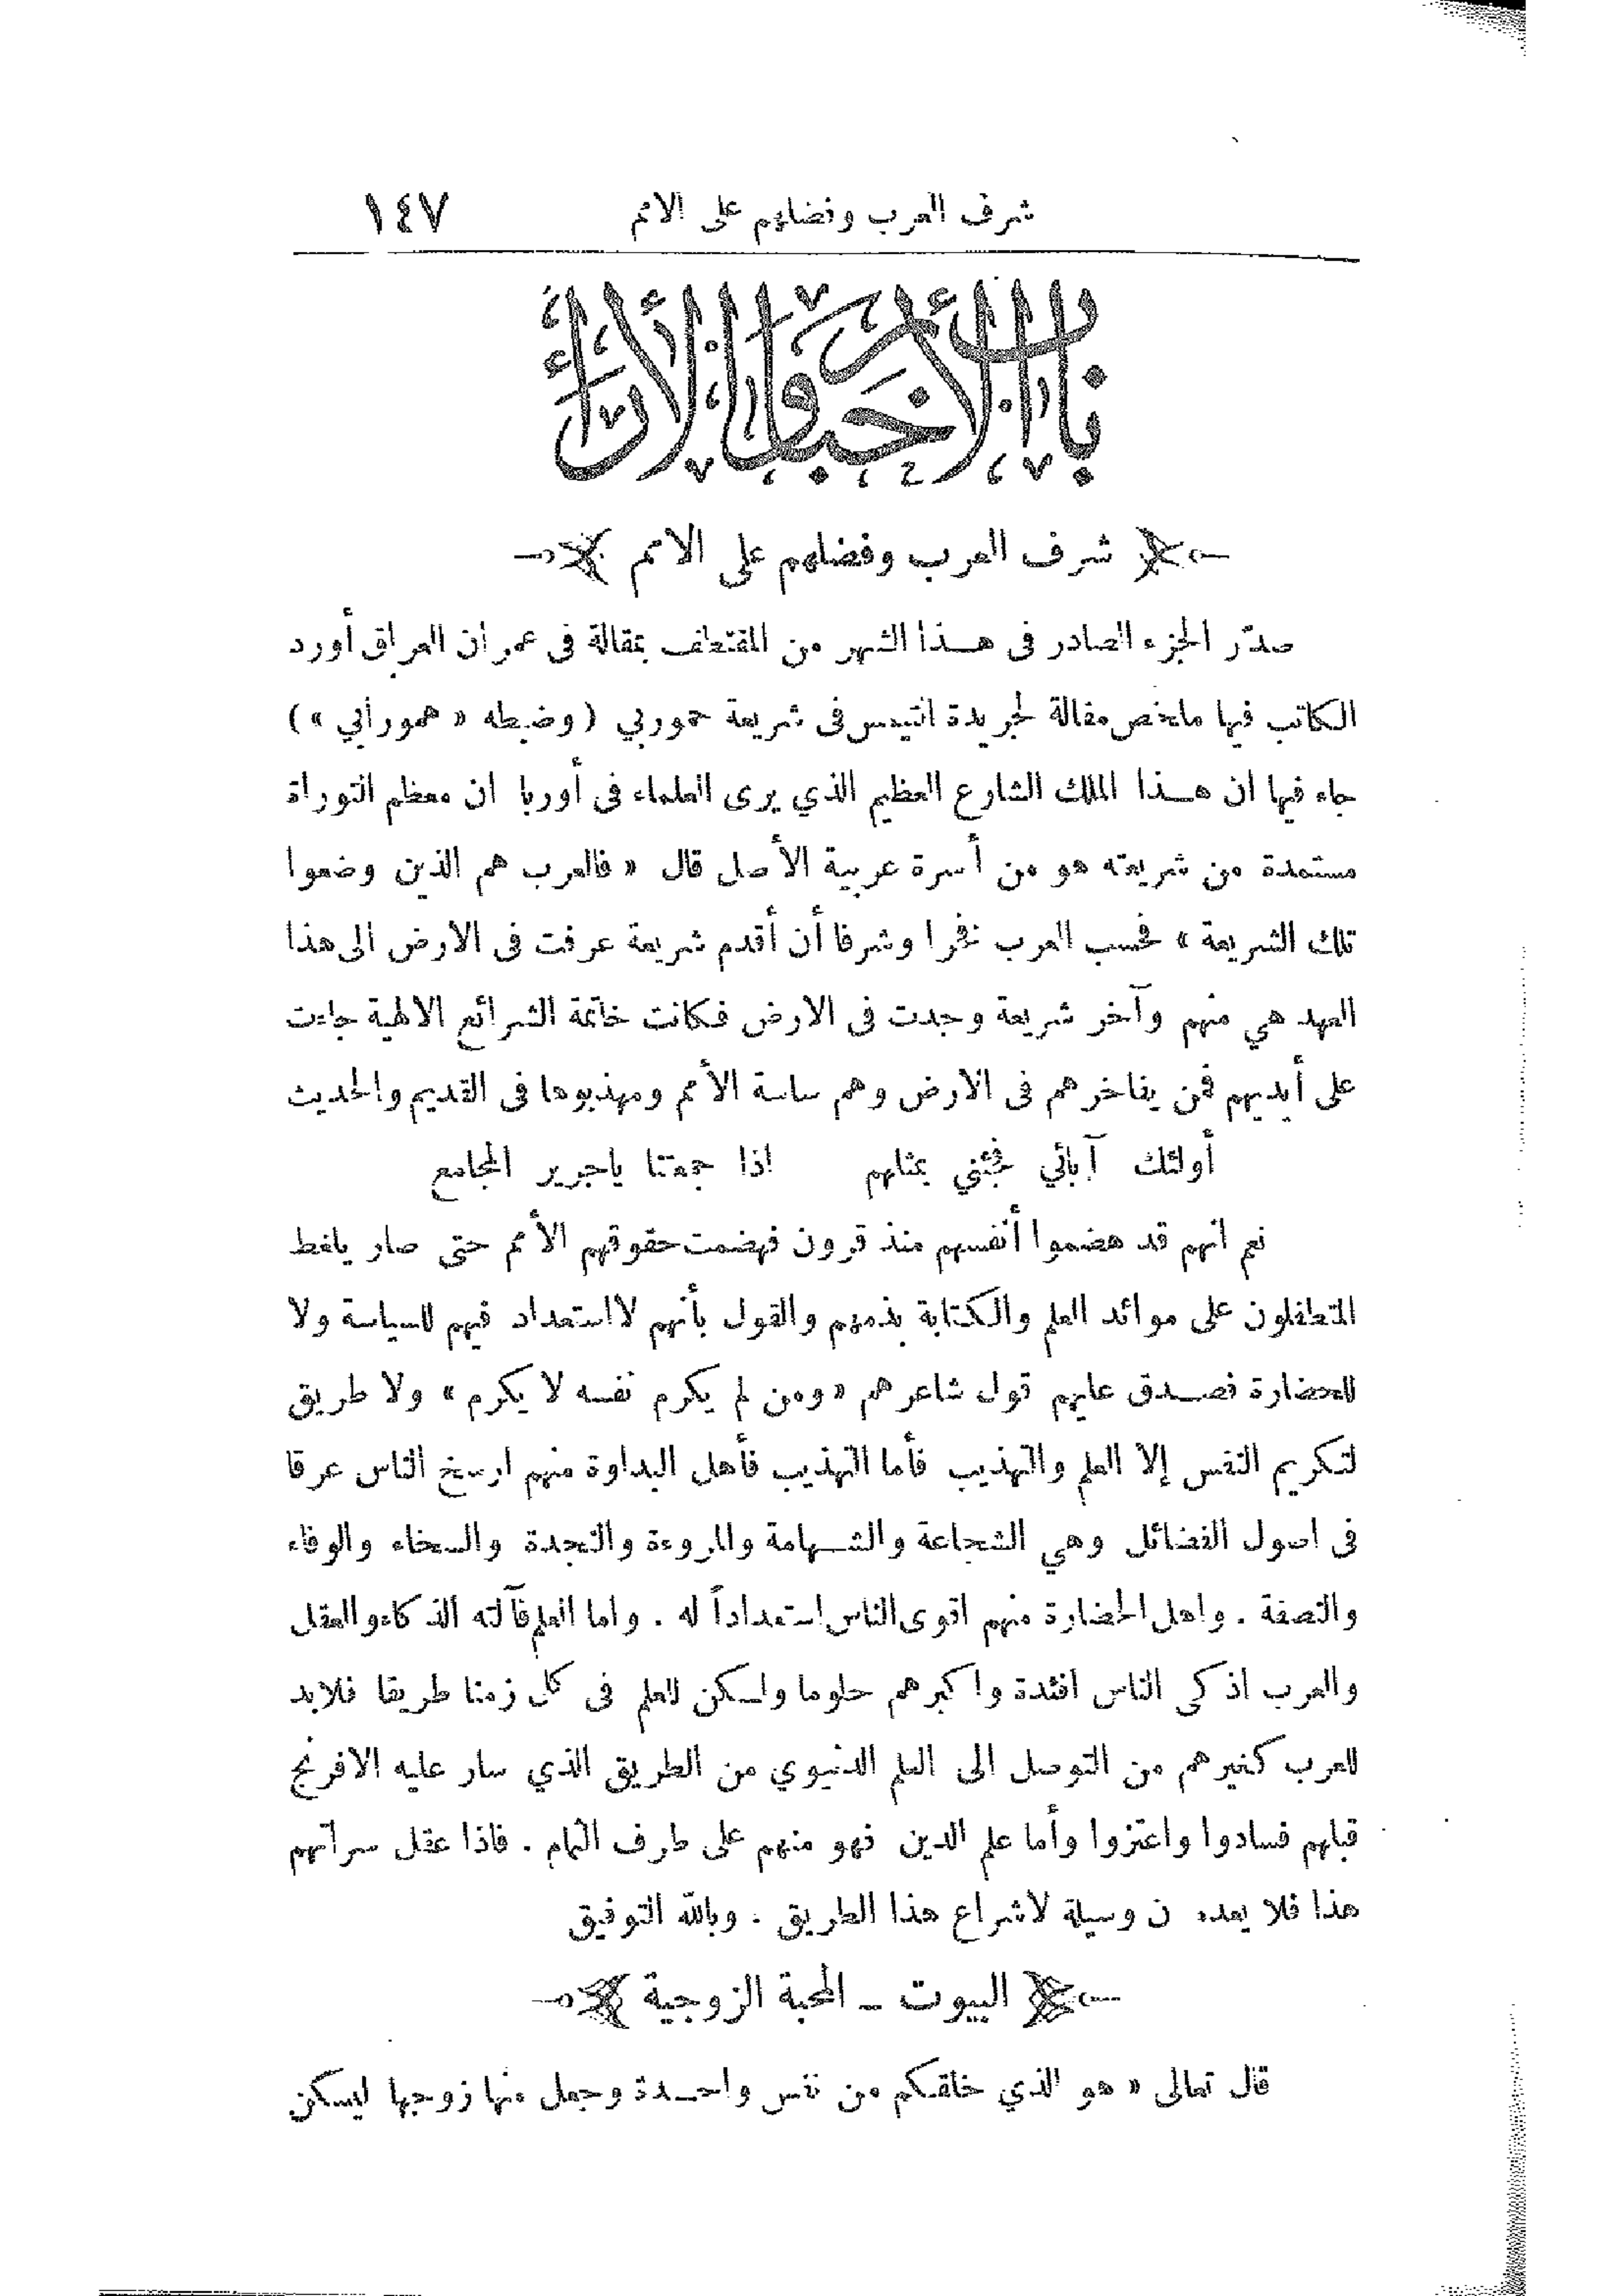 شرف العرب وفضلهم على الامم ١٤٧
باب الأخبار والآراء
شرف العرب وفضلهم على الامم
صدّر الجزء الصادر في هذا الشهر من المقتطف بمقالة في عمران العراق أورد
الكاتب فيها ملخص مقالة لجريدة التيمس في شريعة حموربي (وضبطه « همورأبي »)
جاء فيها ان هذا الملك الشارع العظيم الذي يرى العلماء في أوربا ان معظم التوراة
مستمدة من شريعته هو من أسرة عربية الأصل قال « فالعرب هم الذين وضعوا
تلك الشريعة » فحسب العرب فخرا وشرفا أن أقدم شريعة عرفت في الارض الى هذا
العهد هي منهم وآخر شريعة وجدت في الارض فكانت خاتمة الشرائع الالهية جاءت
على أيديهم فمن يفاخرهم في الارض وهم ساسة الأمم ومهذبوها في القديم والحديث
أولئك آبائي فجئني بمثلهم اذا جمعتنا ياجرير المجامع
نعم انهم قد هضموا أنفسهم منذ قرون فهضمت حقوقهم الأمم حتى صار يلغط
المتطفلون على موائد العلم والكتابة بذمهم والقول بأنهم لااستعداد فيهم للسياسة ولا
للحضارة فصدق عليهم قول شاعرهم « ومن لم يكرم نفسه لا يكرم » ولا طريق
لتكريم النفس إلا العلم والتهذيب فأما التهذيب فأهل البداوة منهم ارسخ الناس عرقا
في اصول الفضائل وهي الشجاعة والشهامة والمروءة والنجدة والسخاء والوفاء
والنصفة . واهل الحضارة منهم اقوى الناس استعداداً له . واما العلم فآلته الذكاء والعقل
والعرب اذكى الناس افئدة واكبرهم حلوما ولكن للعلم في كل زمنا طريقا فلابد
للعرب كغيرهم من التوصل الى العلم الدنيوي من الطريق الذي سار عليه الافرنج
قبلهم فسادوا واعتزوا وأما علم الدين فهو منهم على طرف الثمام . فاذا عقل سراتهم
هذا فلا يعدمون وسيلة لاشراع هذا الطريق . وبالله التوفيق
البيوت ــ المحبة الزوجية
قال تعالى « هو الذي خلقكم من نفس واحدة وجعل منها زوجها ليسكن